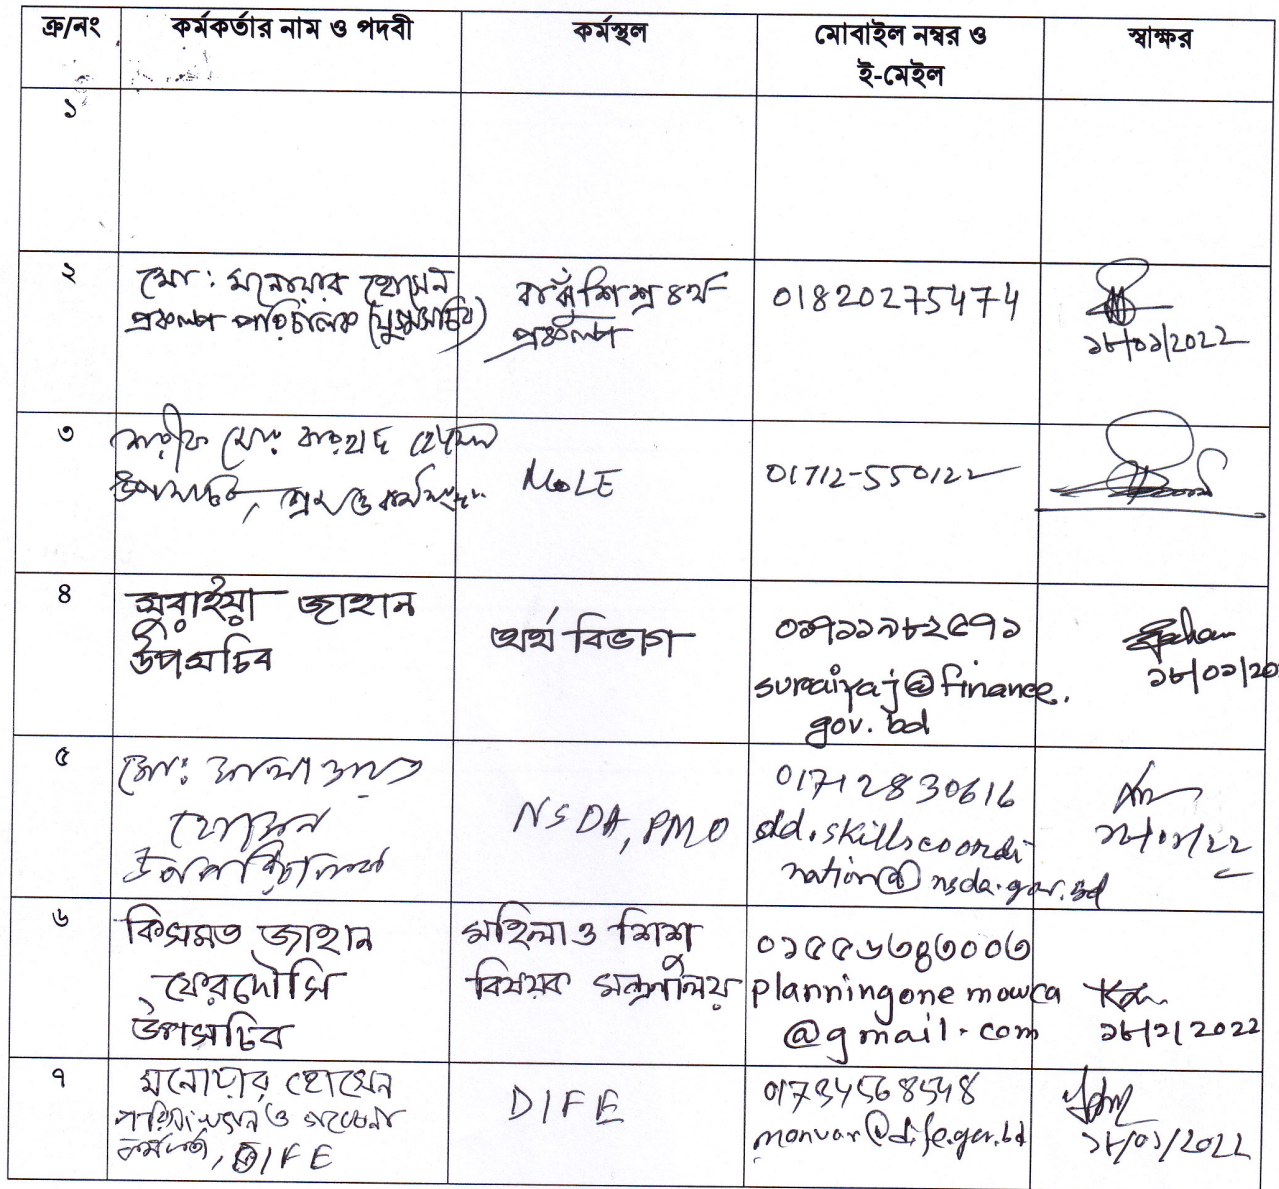 ক্র/নং কর্মকর্তার নাম ও পদবী কর্মস্থল মোবাইল নম্বর ও স্বাক্ষর
ই-মেইল
১
২ মো: মনোয়ার হোসেন
প্রকল্প পরিচালক (যুগ্মসচিব)
৪র্থ
প্রকল্প
01820275474
১৮/০১/2022
৩ শরীফ মোঃ ফরহাদ হোসেন
উপসচিব, শ্রম ও কর্মসংস্থান
MoLE
01712-550122
৪ সুরাইয়া জাহান
উপসচিব
অর্থ বিভাগ
০১৭১১৯৮২৫৭১
suraiyaj@finance.
gov.bd
১৮/০১/20
৫ মো:
হোসেন
উপপরিচালক
NSDA, PMO
01712830616
dd.skillscoordi
nation@nsda.gov.bd
১৮/০১/22
৬ কিসমত জাহান
ফেরদৌসি
উপসচিব
মহিলা ও শিশু
বিষয়ক মন্ত্রণালয়
০১৫৫৬৩৪৩০০৩
planningonemowca
@gmail.com
১৮/১/2022
৭ মনোয়ার হোসেন
পরিসংখ্যান ও গবেষণা
কর্মকর্তা, DIFE
DIFE
01734568548
monuar@dife.gov.bd
১৮/০১/2022